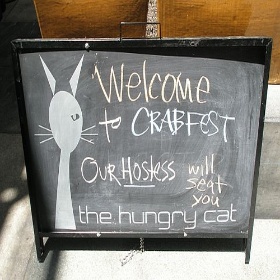 Welcome
to CRABFEST
OUR HOStess will
seat
you
the hungry cat